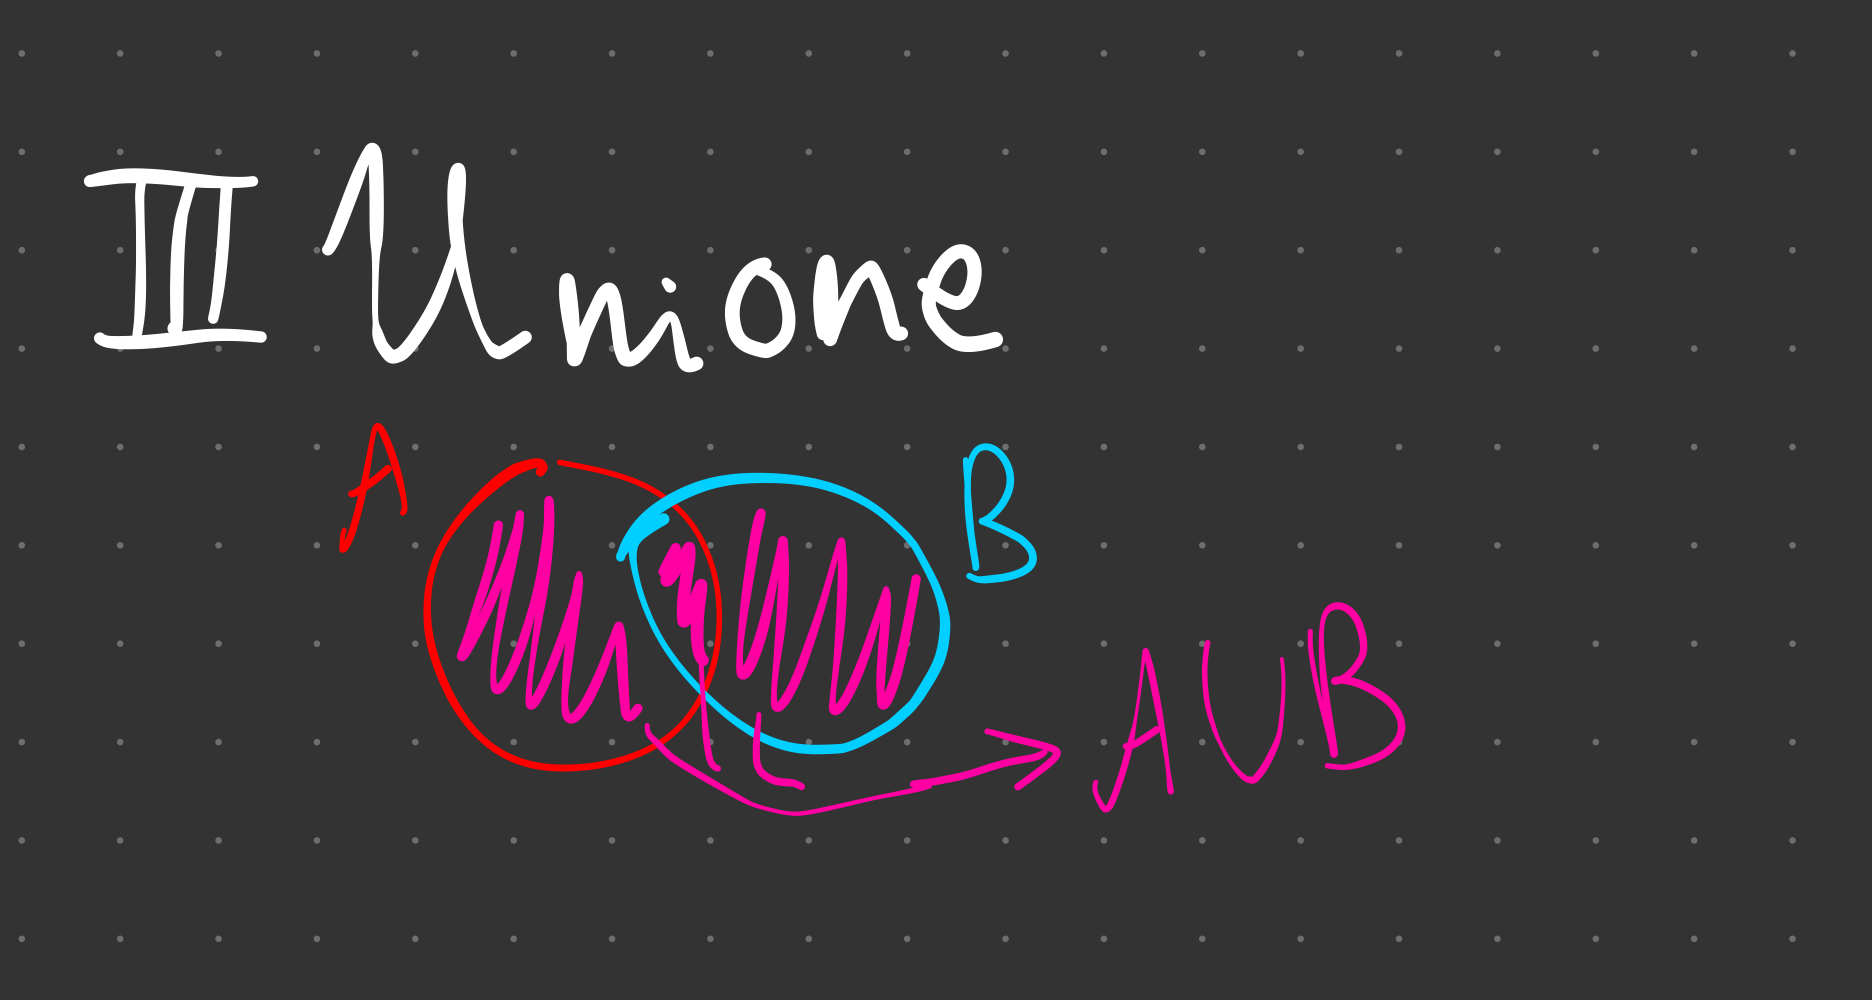 III Unione
A
B
A∪B